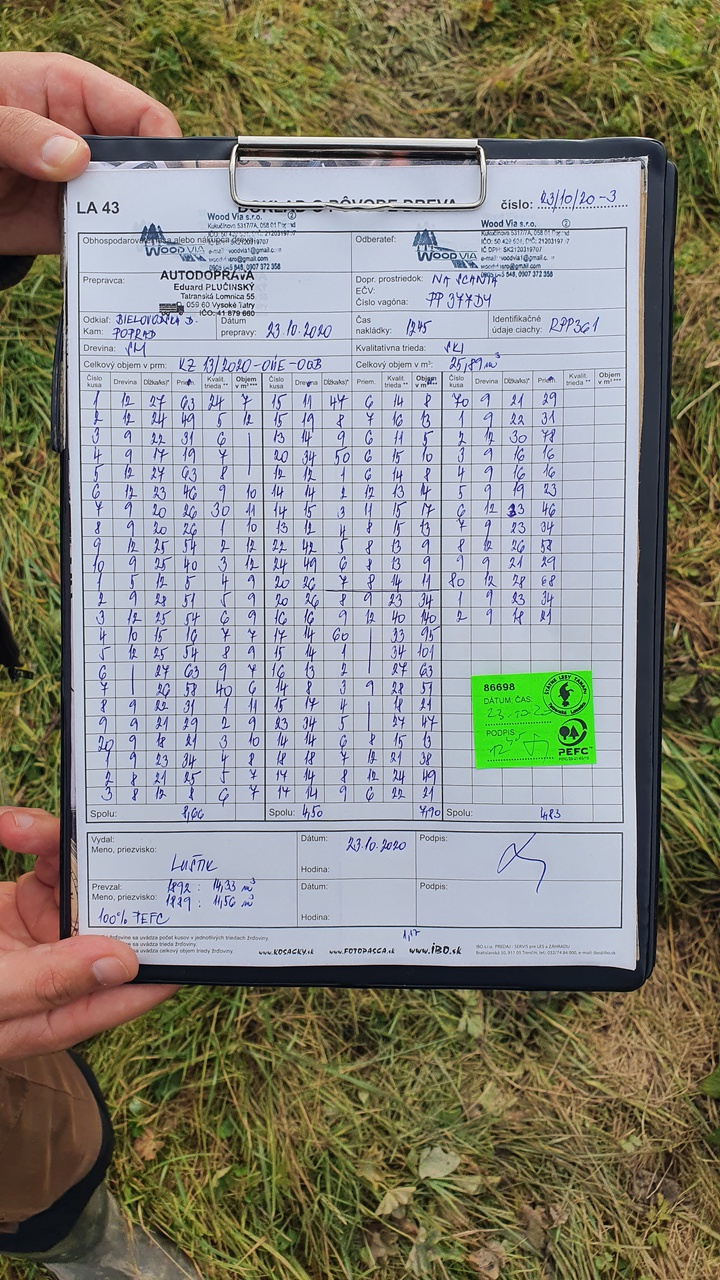 LA 43
DOKLAD O PÔVODE DREVA
číslo: 23/10/20-3
Wood Via s.r.o. ②
Obhospodarovateľ lesa alebo nákupca dreva:
WOOD VIA
Odberateľ:
Wood Via s.r.o. ②
WOOD VIA
Prepravca:
AUTODOPRAVA
Eduard PLUČINSKÝ
Tatranská Lomnica 55
059 60 Vysoké Tatry
IČO: 41 879 660
Dopr. prostriedok:
EČV:
Číslo vagóna: PP 377DY
Odkiaľ: BIELOVODSKÁ D.
Kam: POPRAD
Dátum prepravy: 23.10.2020
Čas nakládky: 1245
Identifikačné údaje ciachy: RPP361
Drevina: SM
Kvalitatívna trieda:
Celkový objem v prm:
Celkový objem v m³: 25,89 m³
Číslo kusa Drevina Dĺžka(ks)* Priem. Kvalit. trieda ** Objem v m³ ***
1 12 27 63 24 7 15 11 47 6 14 8 70 9 21 29
2 12 24 49 5 12 15 19 8 7 16 13 1 9 22 31
3 9 22 31 6 13 14 9 6 11 5 2 12 30 78
4 9 17 19 7 20 34 50 6 15 10 3 9 16 16
5 12 27 63 8 12 12 1 6 14 8 4 9 16 16
6 12 23 46 9 10 14 14 2 12 13 14 5 9 19 23
7 9 20 26 30 11 14 15 3 11 15 17 6 12 23 46
8 9 20 26 1 10 13 12 4 8 15 13 7 9 23 34
9 12 25 54 2 12 22 42 5 8 13 9 8 12 26 58
10 9 25 40 3 12 24 49 6 8 13 9 9 9 21 29
1 5 12 5 4 9 20 26 7 8 14 11 80 12 28 68
2 9 28 51 5 9 20 26 8 9 23 34 1 9 23 34
3 12 25 54 6 9 16 16 9 12 40 140 2 9 18 21
4 10 15 16 7 7 17 14 60 33 95
5 12 25 54 8 9 15 14 1 34 101
6 27 63 9 7 16 13 2 27 63
7 26 58 40 6 14 8 3 9 28 51
8 9 22 31 1 11 15 17 4 18 21
9 9 21 29 2 9 23 34 5 27 47
20 9 18 21 3 10 14 14 6 8 15 13
1 9 23 34 4 8 18 18 7 12 21 38
2 8 21 25 5 7 17 14 8 12 24 49
3 8 12 8 6 7 17 14 9 6 22 21
Spolu: 8,66 Spolu: 4,50 7,90 Spolu: 4,83
86698
DÁTUM, ČAS:
PODPIS
ŠTÁTNE LESY TANAPu
PEFC
Vydal:
Meno, priezvisko:
Dátum: 23.10.2020
Hodina:
Podpis:
Prevzal: 1892 : 14,33 m³
Meno, priezvisko: 1829 : 11,56 m³
100% PEFC
Dátum:
Hodina:
Podpis:
www.KOSACKY.sk www.FOTOPASCA.sk www.iBO.sk